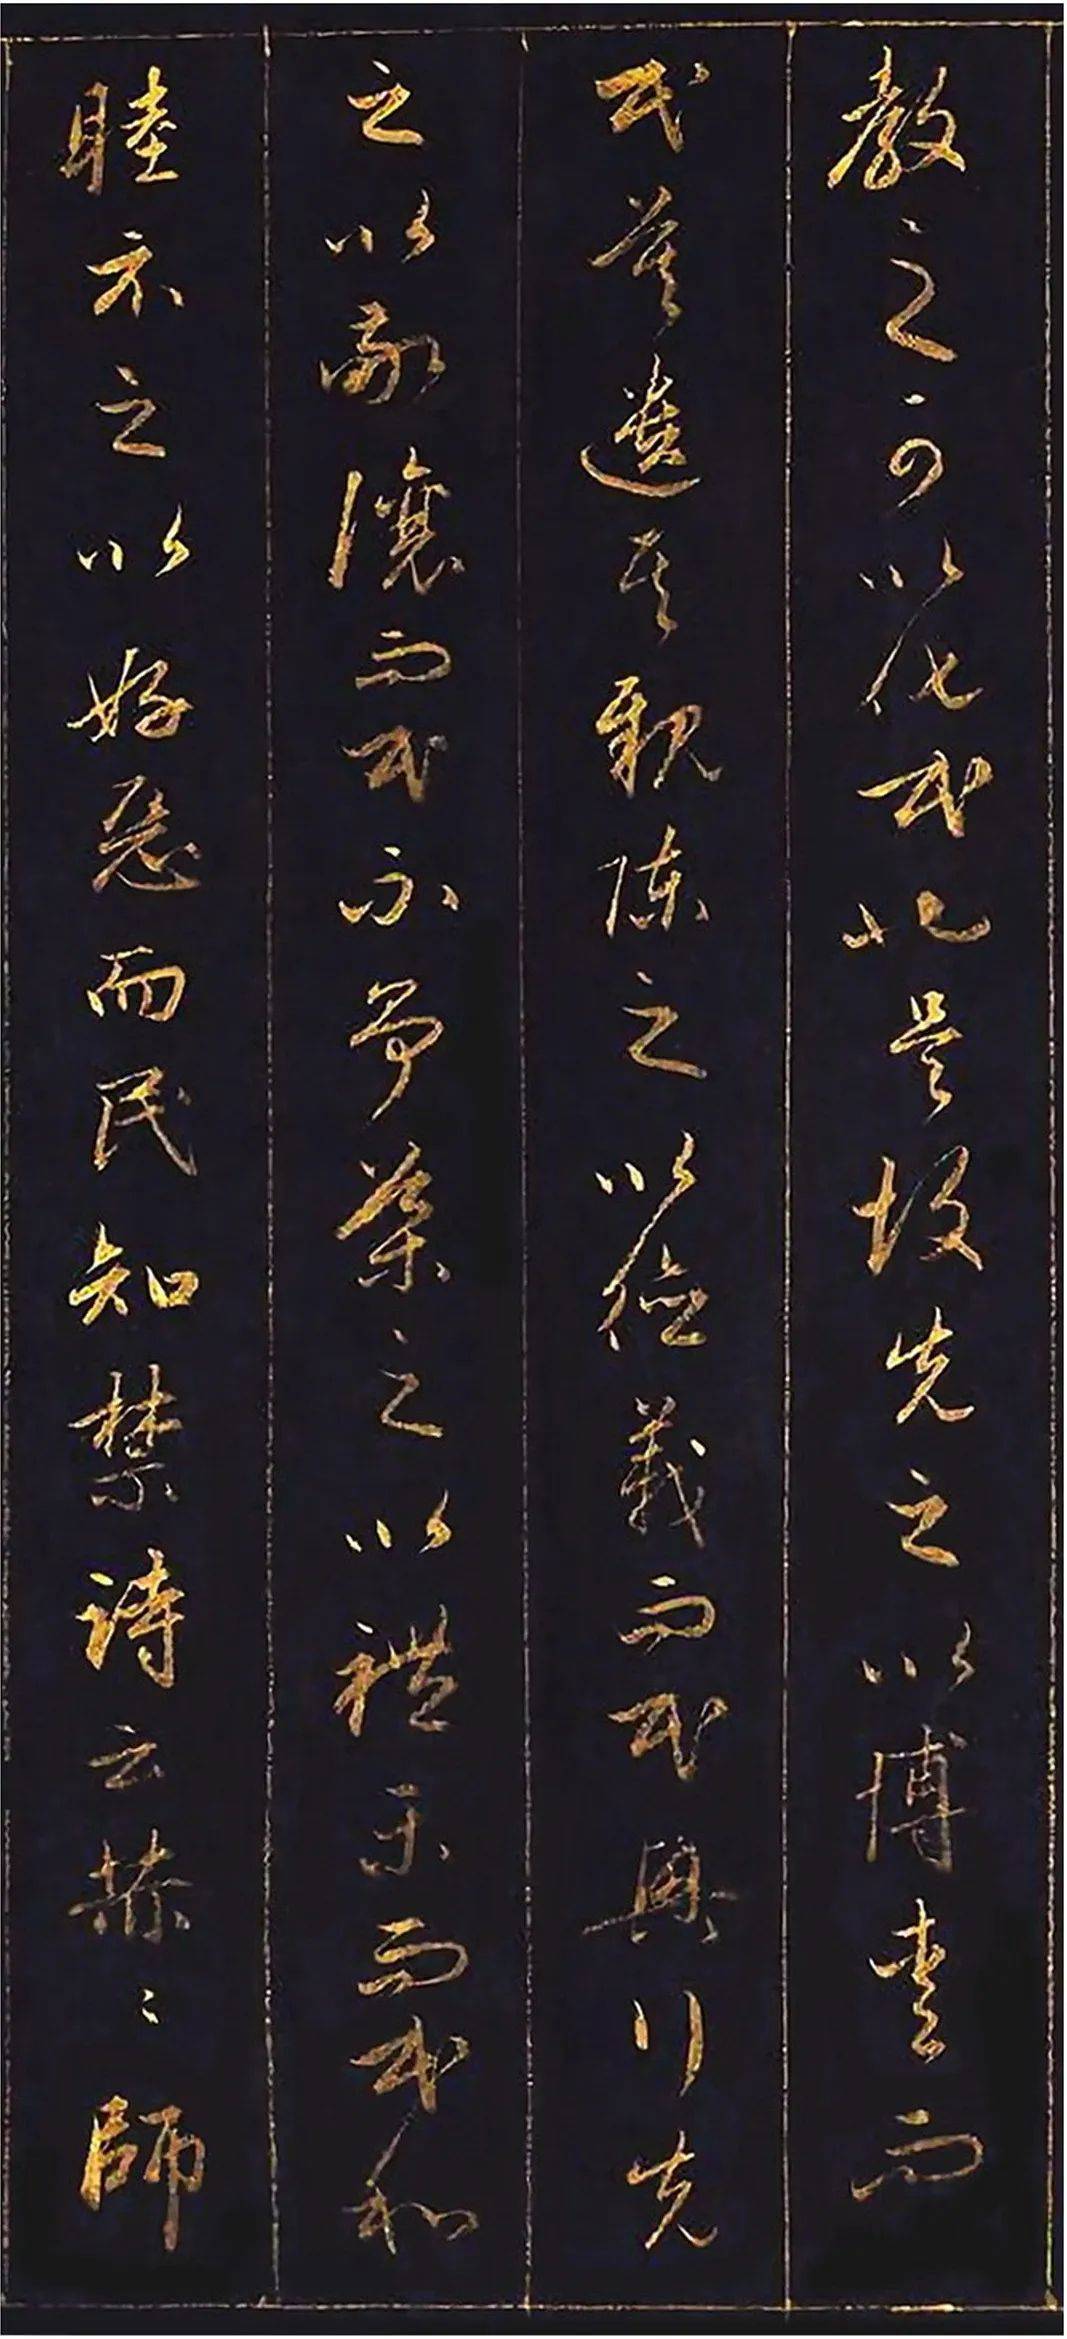 教之可以化民也是故先之以博愛而
民莫遺其親陳之以德義而民興行先
之以敬讓而民不爭導之以禮樂而民和
睦示之以好惡而民知禁詩云赫〻師